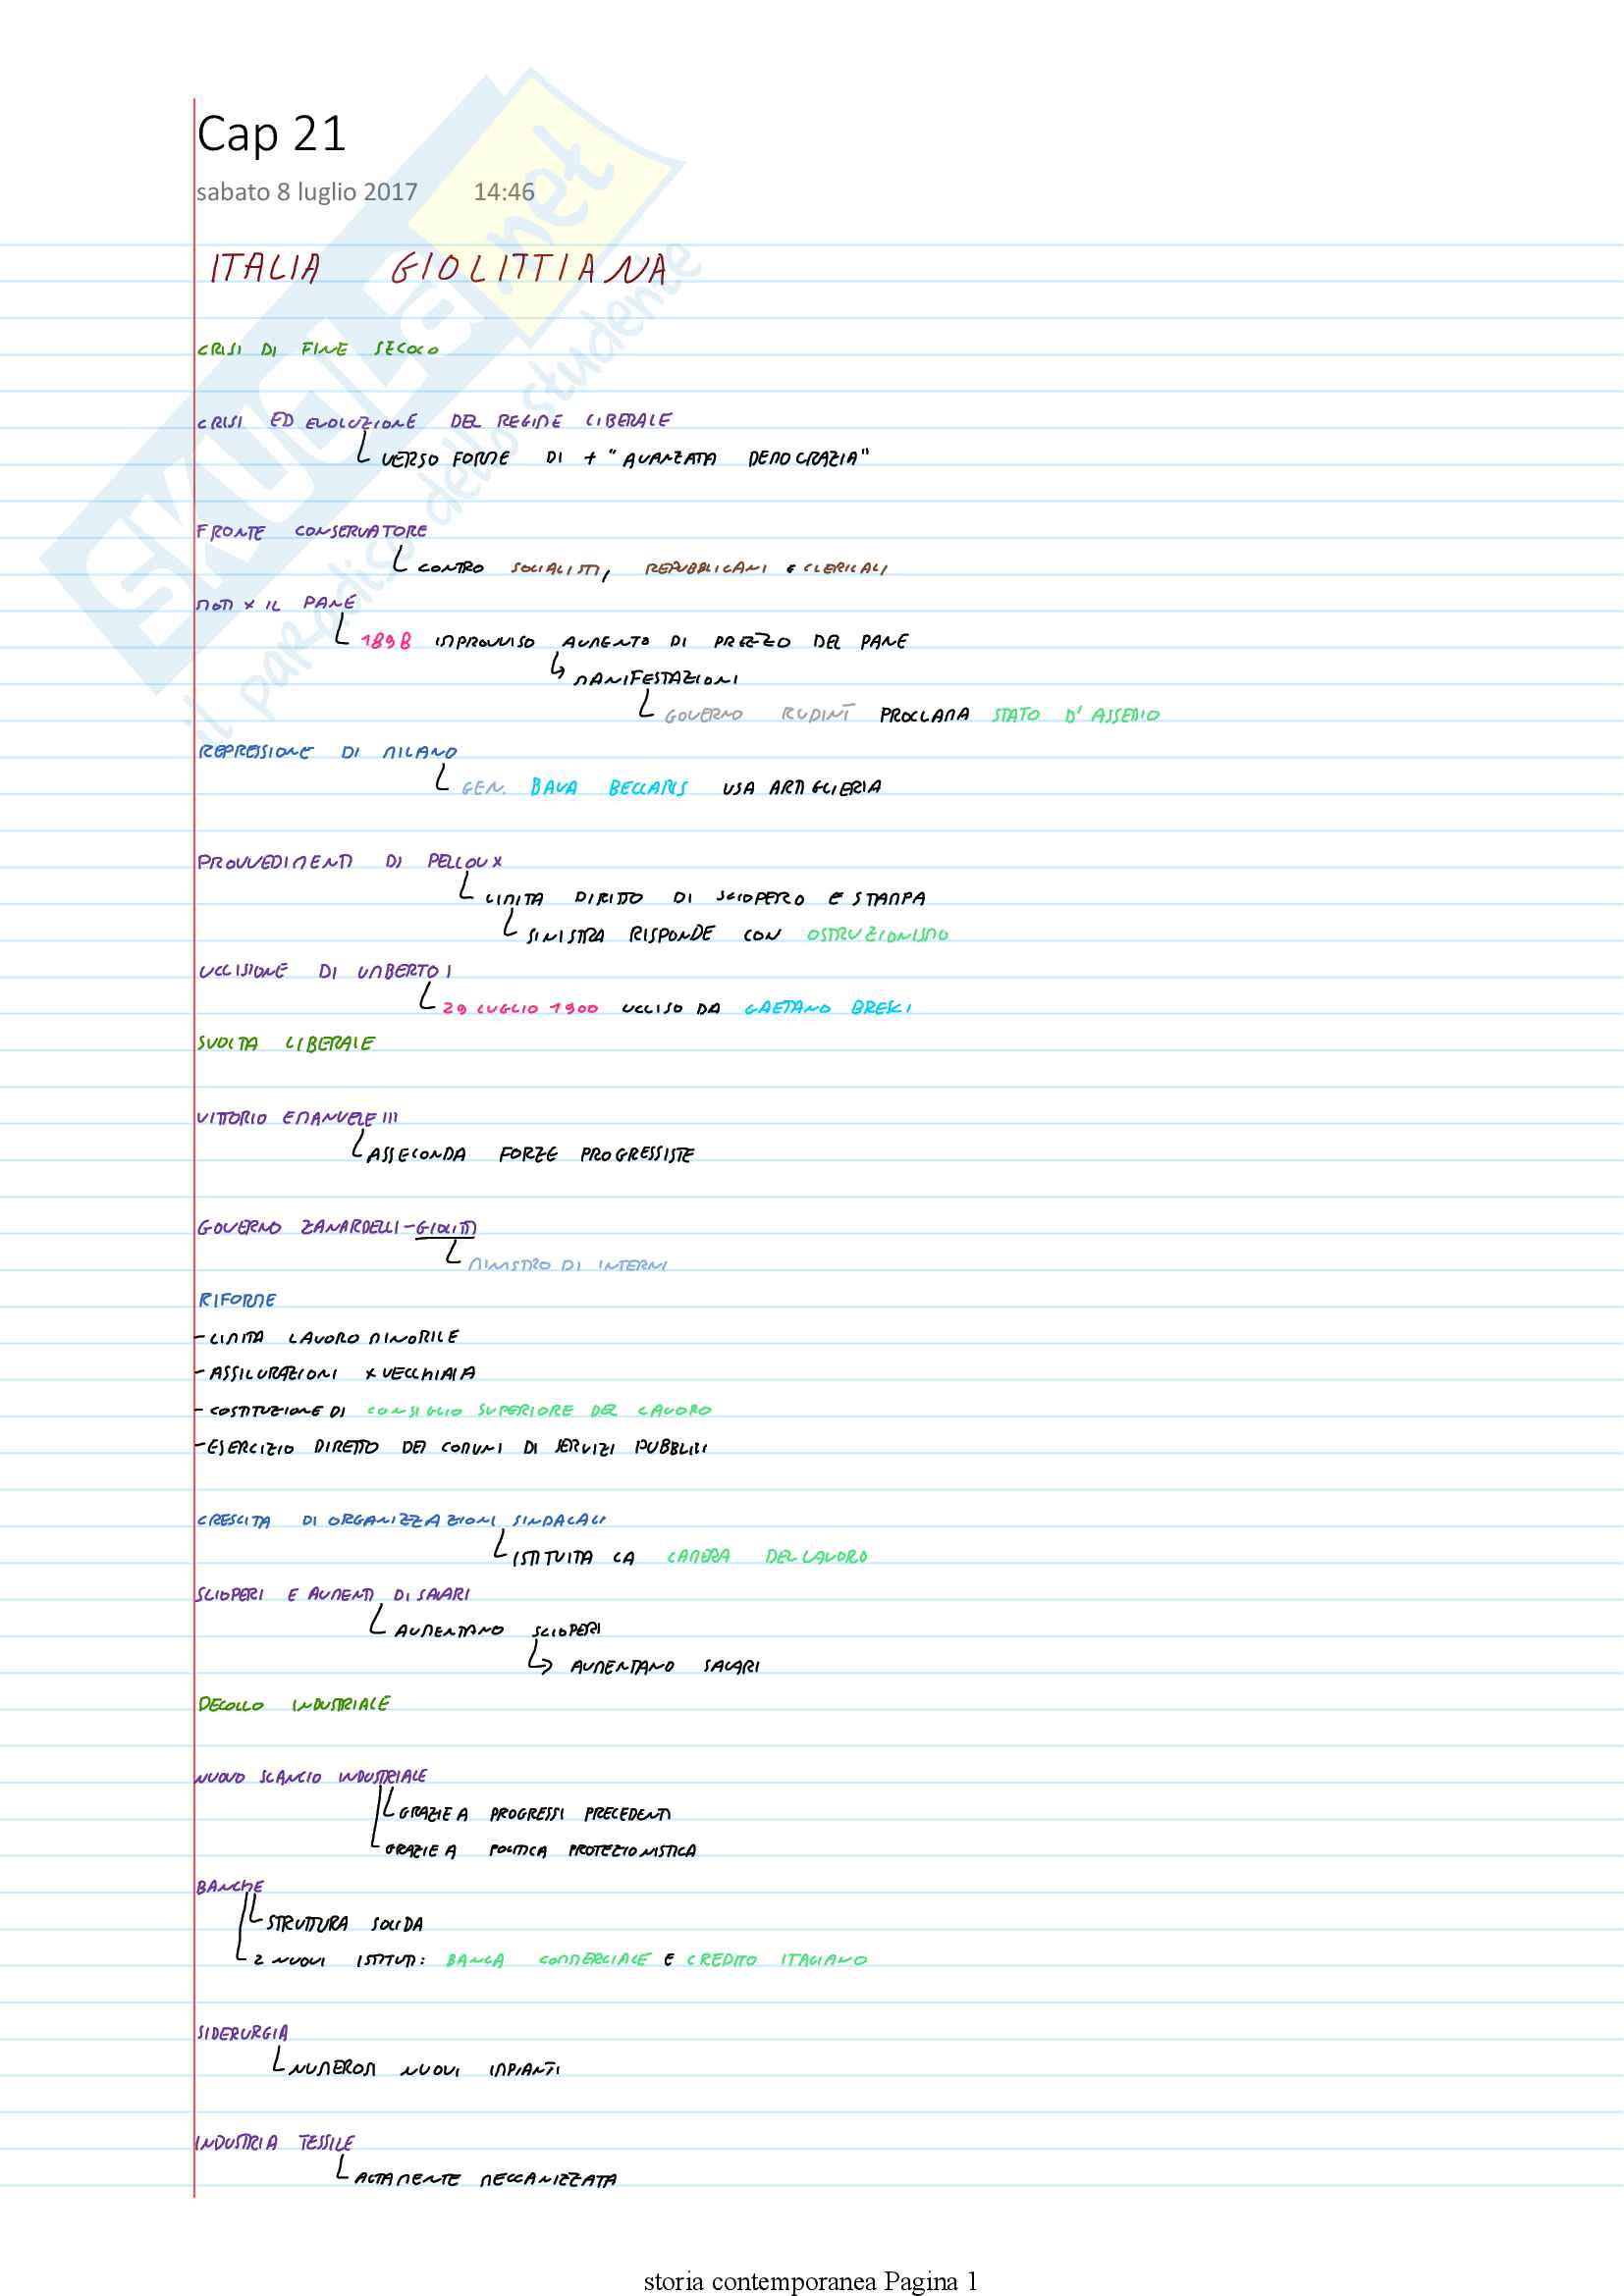 Cap 21
sabato 8 luglio 2017 14:46
ITALIA GIOLITTIANA
CRISI DI FINE SECOLO
CRISI ED EVOLUZIONE DEL REGIME LIBERALE
VERSO FORME DI + "AVANZATA DEMOCRAZIA"
FRONTE CONSERVATORE
CONTRO SOCIALISTI, REPUBBLICANI E CLERICALI
MOTI X IL PANE
1898 IMPROVVISO AUMENTO DI PREZZO DEL PANE
MANIFESTAZIONI
GOVERNO RUDINÌ PROCLAMA STATO D'ASSEDIO
REPRESSIONE DI MILANO
GEN. BAVA BECCARIS USA ARTIGLIERIA
PROVVEDIMENTI DI PELLOUX
LIMITA DIRITTO DI SCIOPERO E STAMPA
SINISTRA RISPONDE CON OSTRUZIONISMO
UCCISIONE DI UMBERTO I
29 LUGLIO 1900 UCCISO DA GAETANO BRESCI
SVOLTA LIBERALE
VITTORIO EMANUELE III
ASSECONDA FORZE PROGRESSISTE
GOVERNO ZANARDELLI-GIOLITTI
MINISTRO DI INTERNI
RIFORME
- LIMITA LAVORO MINORILE
- ASSICURAZIONI X VECCHIAIA
- COSTITUZIONE DI CONSIGLIO SUPERIORE DEL LAVORO
- ESERCIZIO DIRETTO DEI COMUNI DI SERVIZI PUBBLICI
CRESCITA DI ORGANIZZAZIONI SINDACALI
ISTITUITA LA CAMERA DEL LAVORO
SCIOPERI E AUMENTI DI SALARI
AUMENTANO SCIOPERI
AUMENTANO SALARI
DECOLLO INDUSTRIALE
NUOVO SLANCIO INDUSTRIALE
GRAZIE A PROGRESSI PRECEDENTI
GRAZIE A POLITICA PROTEZIONISTICA
BANCHE
STRUTTURA SOLIDA
2 NUOVI ISTITUTI: BANCA COMMERCIALE E CREDITO ITALIANO
SIDERURGIA
NUMEROSI NUOVI IMPIANTI
INDUSTRIA TESSILE
ALTAMENTE MECCANIZZATA
storia contemporanea Pagina 1
SKUOLA.net
il paradiso dello studente